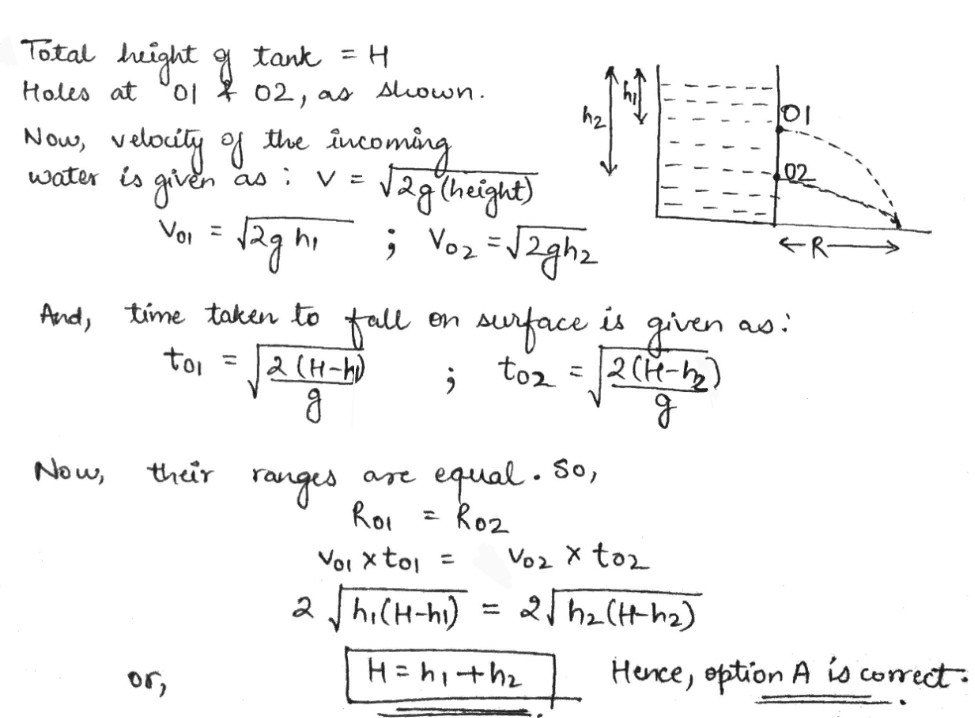 Total height of tank = H
Holes at 01 & 02, as shown.
Now, velocity of the incoming
water is given as : v = √2g(height)
V01 = √2g h1 ; V02 = √2gh2
h2
h1
01
02
← R →
And, time taken to fall on surface is given as :
t01 = √2(H-h1)/g ; t02 = √2(H-h2)/g
Now, their ranges are equal. So,
R01 = R02
V01 × t01 = V02 × t02
2√h1(H-h1) = 2√h2(H-h2)
or, H = h1 + h2 Hence, option A is correct.